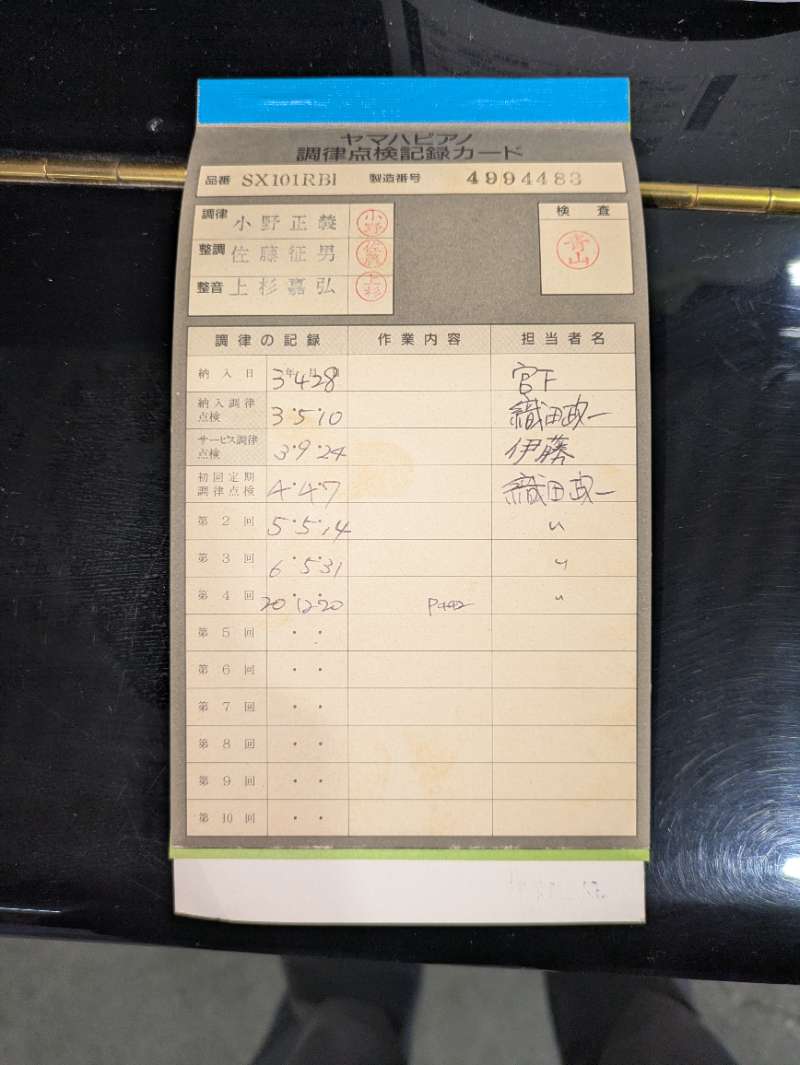 ヤマハピアノ
調律点検記録カード
品番 SX101RBl 製造番号 4994483
調律 小野正義 小野 検査
整調 佐藤征男 佐藤 青山
整音 上杉嘉弘 上杉
調律の記録 作業内容 担当者名
納入日 3年4月28日 宮下
納入調律点検 3・5・10 織田政一
サービス調律点検 3・9・24 伊藤
初回定期調律点検 4・4・7 織田政一
第2回 5・5・14 〃
第3回 6・5・31 〃
第4回 20・12・20 P442 〃
第5回 ・・
第6回 ・・
第7回 ・・
第8回 ・・
第9回 ・・
第10回 ・・